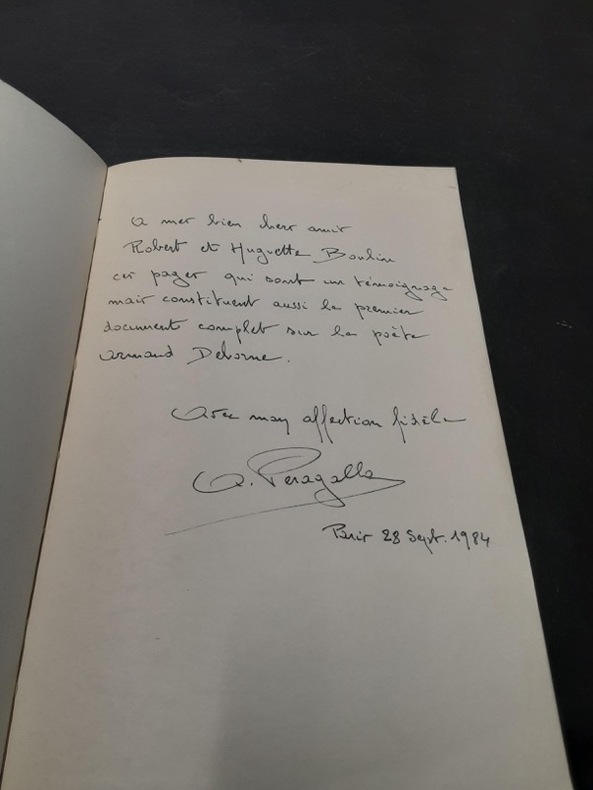 A mes bien chers amis
Robert et Huguette Boulin
ces pages qui sont un témoignage
mais constituent aussi le premier
document complet sur le poète
Armand Delorne.
Avec mon affection fidèle
A. Peragallo
Paris 28 Sept. 1984